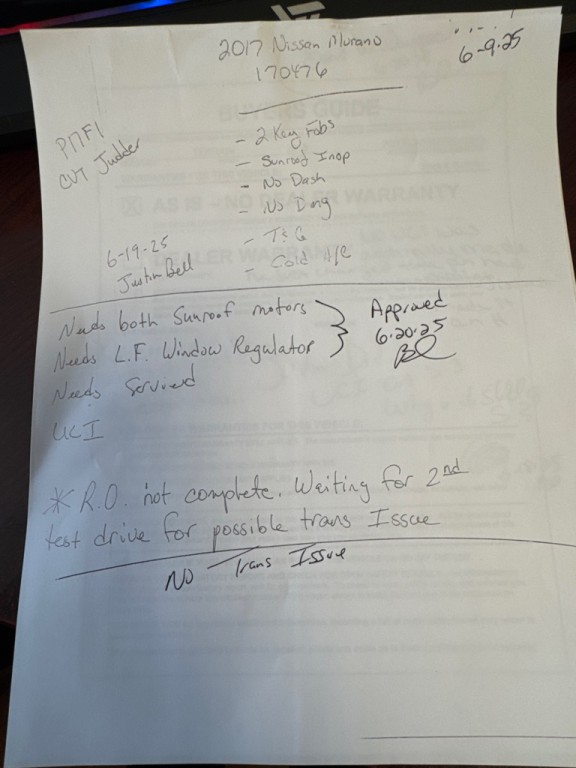 2017 Nissan Murano
170476
6-9-25
PMFI
CVT Judder
- 2 Key Fobs
- Sunroof Inop
- No Dash
- No Dang
- T&G
- Cold A/C
6-19-25
Justin Bell
Needs both Sunroof motors
Needs L.F. Window Regulator
Approved
6-20-25
Needs Serviced
UCI
* R.O. not complete. Waiting for 2nd
test drive for possible trans Issue
No Trans Issue
BUYERS GUIDE
AS IS - NO DEALER WARRANTY
DEALER WARRANTY